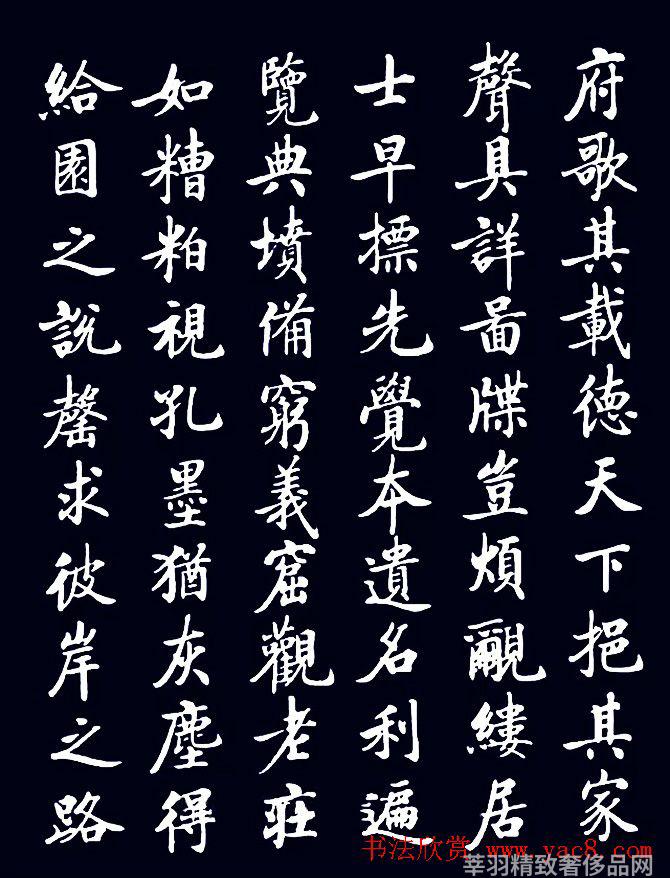 府歌其載徳天下挹其家
聲具詳啚牒豈煩覼縷居
士早摽先覺本遺名利遍
覽典墳備窮義窟觀老莊
如糟粕視孔墨猶灰塵得
給園之說罄求彼岸之路
书法欣赏 www.yac8.com
莘羽精致奢侈品网